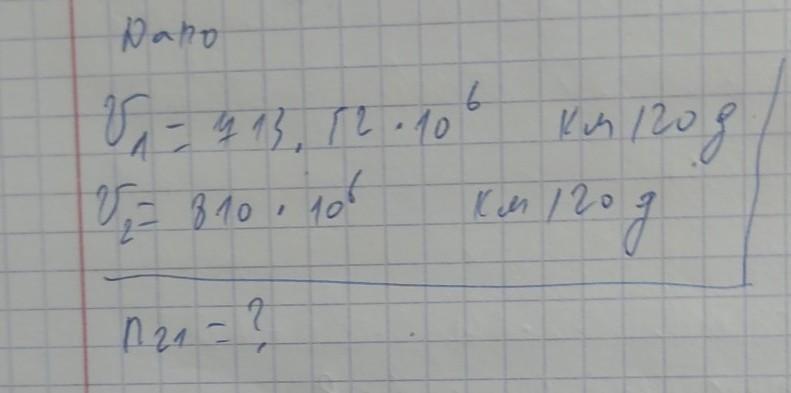 Дано
V₁ = 713.52 · 10⁶ км/год
V₂ = 810 · 10⁶ км/год
n₂₁ = ?